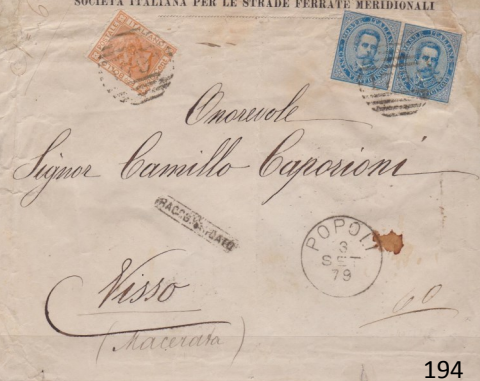 SOCIETÀ ITALIANA PER LE STRADE FERRATE MERIDIONALI
Onorevole
Signor Camillo Caporioni
RACCOMANDATO
POPOLI
3
SET
79
Visso
(Macerata)
194